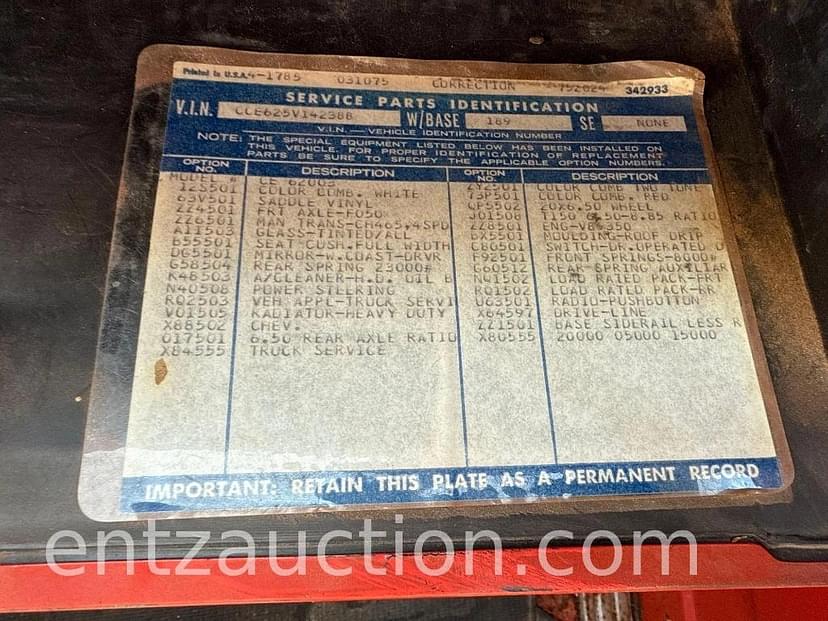 Printed in U.S.A. 4-1785 031075 CORRECTION 752024 342933
SERVICE PARTS IDENTIFICATION
V.I.N. CCE625V142388 W/BASE 189 SE NONE
V.I.N. — VEHICLE IDENTIFICATION NUMBER
NOTE: THE SPECIAL EQUIPMENT LISTED BELOW HAS BEEN INSTALLED ON
THIS VEHICLE. FOR PROPER IDENTIFICATION OF REPLACEMENT
PARTS BE SURE TO SPECIFY THE APPLICABLE OPTION NUMBERS.
OPTION NO. DESCRIPTION OPTION NO. DESCRIPTION
MODEL # CE 62003 ZY2501 COLOR COMB TWO TONE
12S501 COLOR COMB. WHITE 75P501 COLOR COMB. RED
63V501 SADDLE VINYL 20X6.50 WHEEL
ZZ4501 FRT AXLE-F050 J01508 T150 6.50-8.85 RATIO
ZZ6501 MAN TRANS-CH465,4SPD ZZ8501 ENG-V8-350
A11503 GLASS-TINTED/ALL BX5501 MOULDING-ROOF DRIP
B55501 SEAT CUSH.FULL WIDTH C80501 SWITCH-DR.OPERATED D
DG5501 MIRROR-W.COAST-DRVR F92501 FRONT SPRINGS-8000#
G58504 REAR SPRING 23000# G60512 REAR SPRING AUXILIAR
K48503 A/CLEANER-H.D. OIL B NQ1502 LOAD RATED PACK-FRT
N40508 POWER STEERING RQ1502 LOAD RATED PACK-RR
RQ2503 VEH APPL-TRUCK SERVI U63501 RADIO-PUSHBUTTON
V01505 RADIATOR-HEAVY DUTY X64597 DRIVE-LINE
X88502 CHEV. ZZ1501 BASE SIDERAIL LESS R
017501 6.50 REAR AXLE RATIO X80555 20000 05000 15000
X84555 TRUCK SERVICE
IMPORTANT: RETAIN THIS PLATE AS A PERMANENT RECORD
entzauction.com